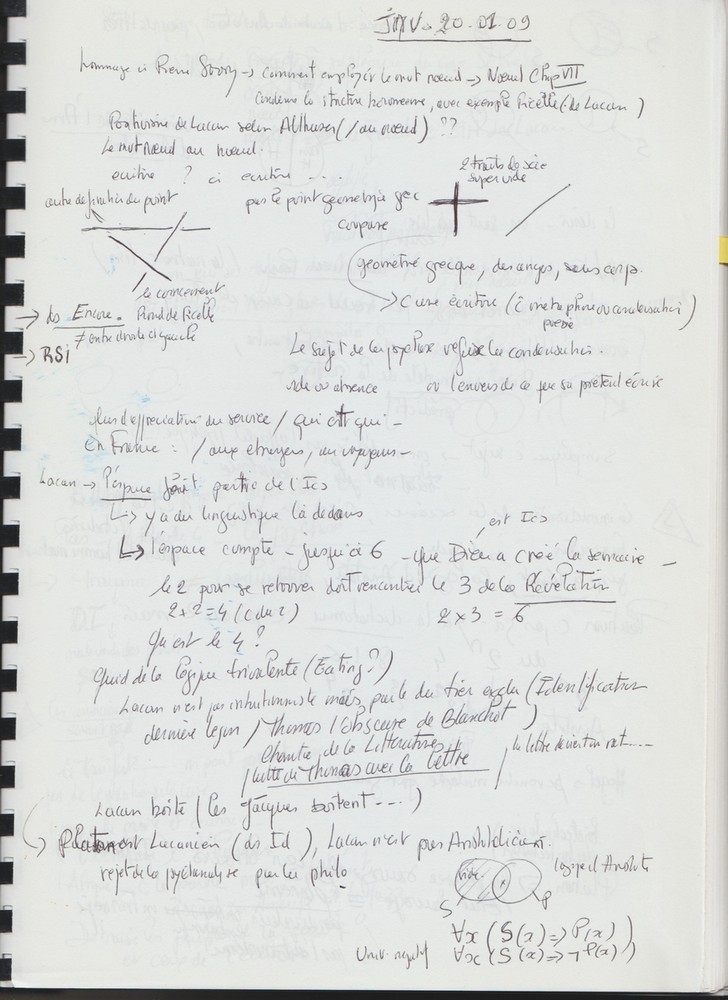 JMV. 20.01.09
hommage à Pierre Soury → comment employer le mot nœud → Nœud Chap VII
condamne la structure borroméenne, avec exemple ficelle (de Lacan)
Positivisme de Lacan selon Althusser (/ au nœud) ??
Le mot nœud au nœud.
écriture ? à écriture ....
2 traits de scie
super vide
autre définition du point
pas le point géométrie grec
coupure
géométrie grecque, des anges, sans corps.
le coincement
→ ds Encore. Rond de ficelle
≠ entre droite et gauche
→ C une écriture (C métaphore ou condensation)
pensée
→ RSI
Le sujet de la psychose refuse la condensation.
vide ou absence ou l'envers de ce que sa prétend écrire
plus d'appréciation du service / qui est qui -
en France : / aux étrangers, au voyageurs -
Lacan → l'espace fait partie de l'Ics
↳ y a du linguistique là dedans
est Ics
↳ l'espace compte - jusqu'à 6 - que Dieu a créé la semaine -
le 2 pour se retrouver doit rencontrer le 3 de la Révélation
2 x 2 = 4 (C du 2) 2 x 3 = 6
Qu est le 4 ?
quid de la logique trivalente (Eating ?)
Lacan n'est pas intuitionniste mais parle du tier exclu (Identification
dernière leçon / Thomas l'Obscure de Blanchot)
Chantre de la Littérature
/ lutte de Thomas avec la lettre / la lettre devient un rat.....
Lacan boite / les Jacques boitent ....)
→ Platon est Lacanien (ds Id), Lacan n'est pas Aristotélicien.
rejet de la psychanalyse par la philo.
vide x logique d'Aristote
S P
∀x (S(x) => P(x))
Univ. négatif ∀x (S(x) => ¬P(x))